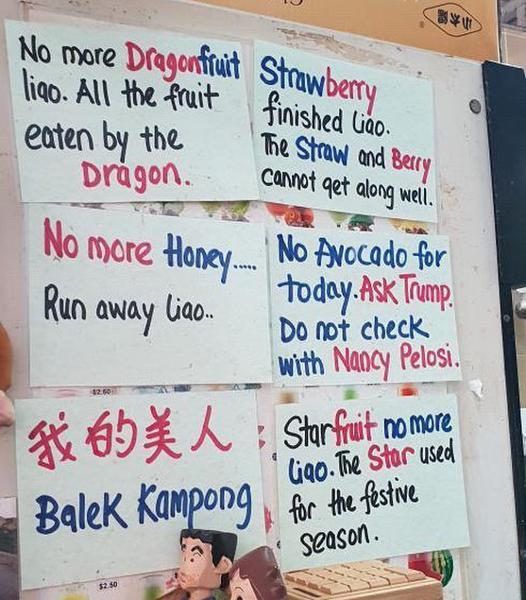 No more Dragonfruit
liao. All the fruit
eaten by the
Dragon.
Strawberry
finished Liao.
The Straw and Berry
cannot get along well.
No more Honey.....
Run away Liao..
No Avocado for
today. Ask Trump.
Do not check
with Nancy Pelosi.
我的美人
Balek Kampong
Starfruit no more
Liao. The Star used
for the festive
season.
$2.60
$2.50